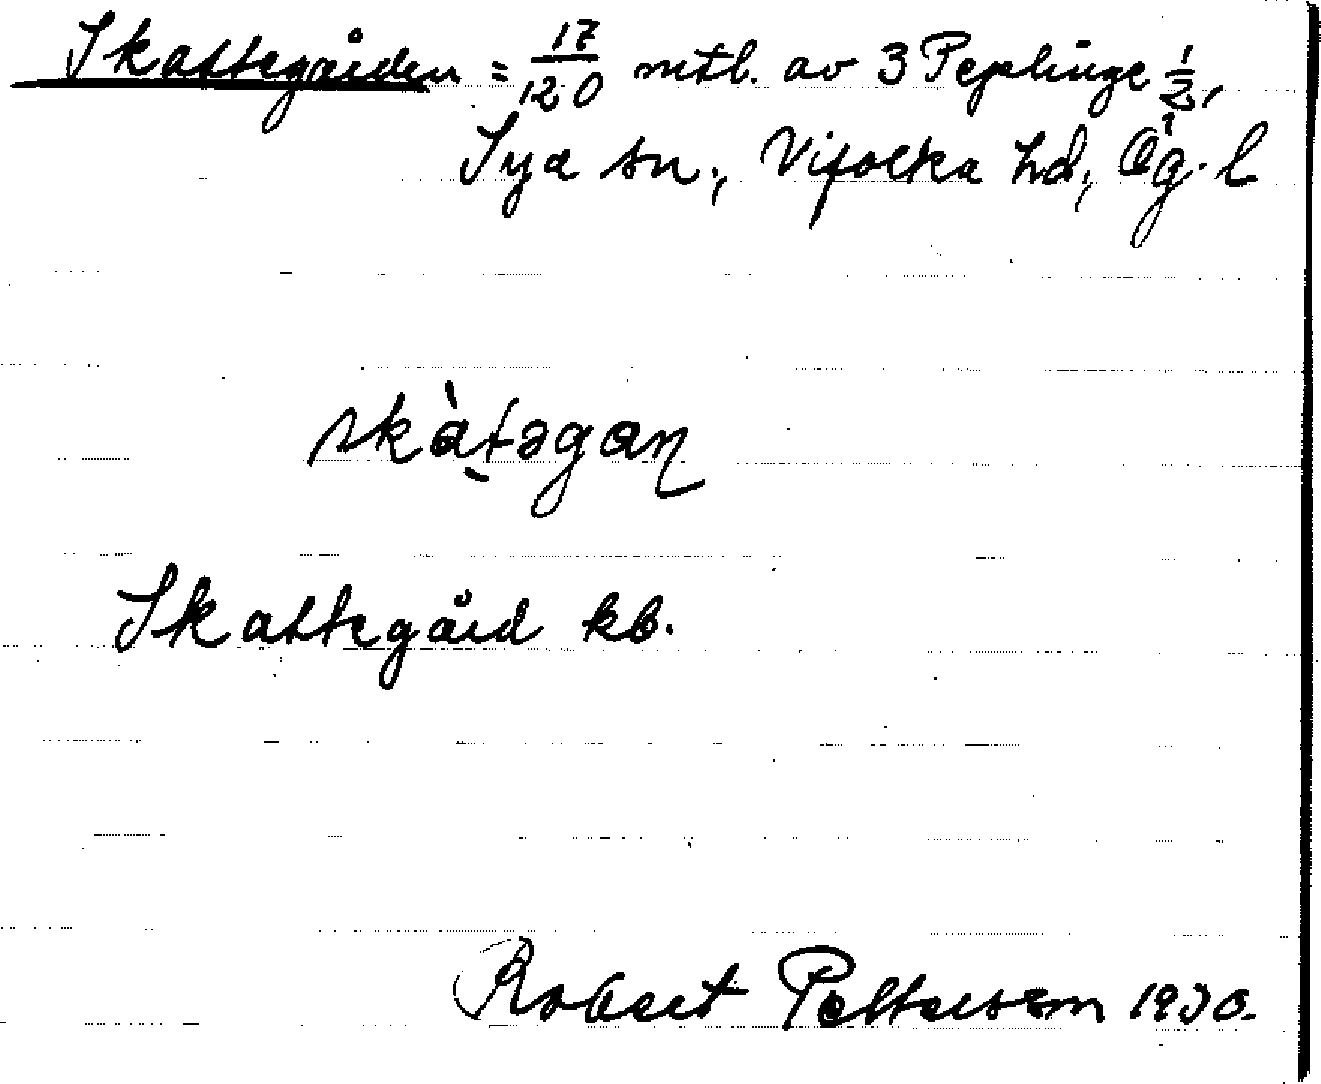 Skattegården = 17/120 mtl. av 3 Peplinge 1/2,
Sya sn., Vifolka hd, Ög. l
skàtəgaɳ
Skattegård kb.
Robert Pettersson 1930.